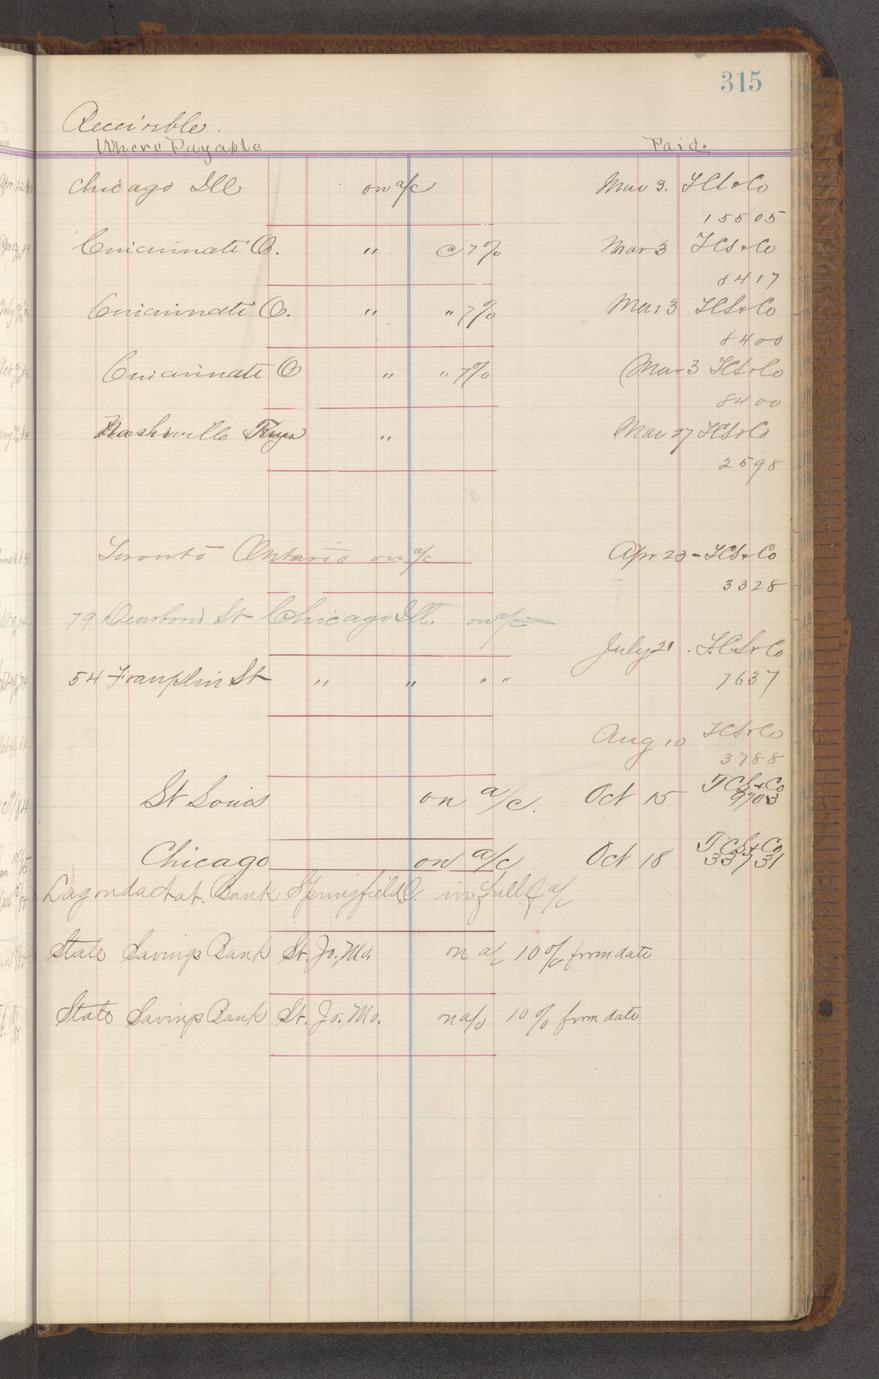 315
Receivable.
Where Payable Paid.
Chicago Ill on a/c Mar 3. T C S & Co
15505
Cincinnati O. " @ 7% Mar 3 T C S & Co
8417
Cincinnati O. " " 7% Mar 3 T C S & Co
8400
Cincinnati O " " 7% Mar 3 T C S & Co
8400
Nashville " Mar 27 T C S & Co
2598
Toronto Ontario on a/c Apr 23 - T C S & Co
3328
79 Dearborn St Chicago Ill. on a/c
July 21 . T. C S & Co
54 Franklin St " " " " 7637
Aug 10 T C S & Co
3788
St Louis on a/c. Oct 15 T C S & Co
9703
Chicago on a/c Oct 18 T C S & Co
33731
Lagonda Nat. Bank Springfield O. in full of a/c
State Savings Bank St. Jo, Mo. on a/c 10% from date
State Savings Bank St. Jo, Mo. on a/c 10% from date